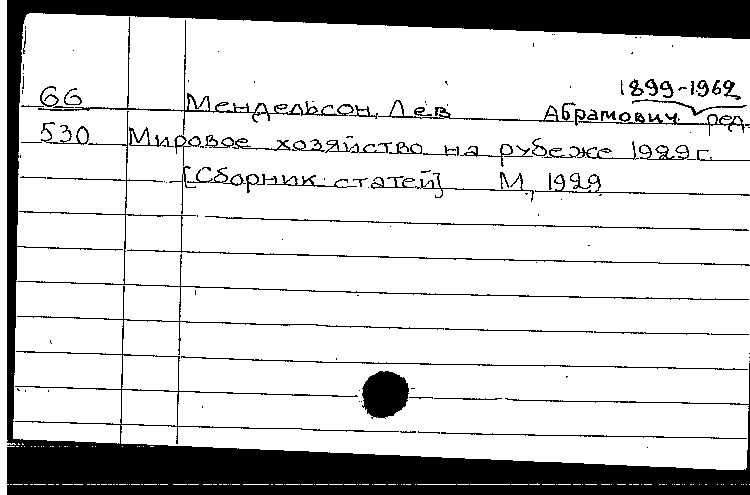 1899-1962
66 Мендельсон, Лев Абрамович ред.
530 Мировое хозяйство на рубеже 1929 г.
[Сборник статей] М, 1929